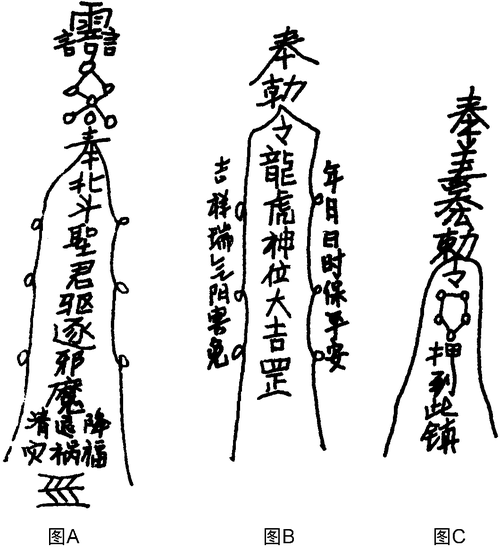 奉北斗聖君驱逐邪魔
清退降
灾祸福
图A
奉勅令龍虎神位大吉罡
吉祥瑞气阴害免
年月日时保平安
图B
勅令押到此镇
图C